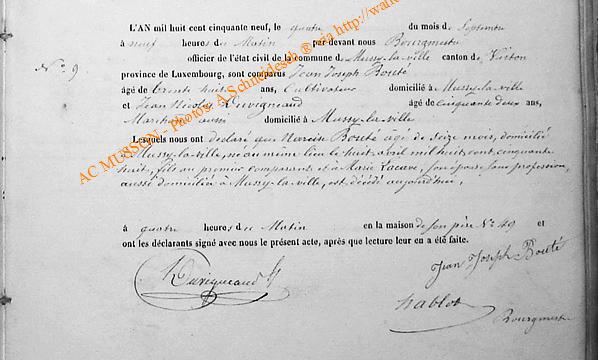 L'AN mil huit cent cinquante neuf, le quatre du mois de Septembre
à neuf heures du Matin par-devant nous Bourgmestre
officier de l'état civil de la commune de Mussy-la-ville canton de Virton
N° 9
province de Luxembourg, sont comparus Jean Joseph Bouté
âgé de trente huit ans, Cultivateur domicilié à Mussy-la-ville
et Jean Nicolas Duvigneaud âgé de cinquante deux ans,
Marchand aussi domicilié à Mussy-la-ville
Lesquels nous ont déclaré que Narcis Bouté agé de seize mois, domicilié
à Mussy-la-ville, né au même lieu le huit avril mil huit cent cinquante
huit, fils du premier comparant et de Marie Lacave, son épouse sans profession,
aussi domiciliée à Mussy-la-ville, est décédé aujourd'hui,
à quatre heures du Matin en la maison de son père N° 49 et
ont les déclarants signé avec nous le présent acte, après que lecture leur en a été faite.
Duvigneaud
Jean Joseph Bouté
hablot
Bourgmestre
AC MUSSON - Photos: A.Schneidesch @ via http://wa